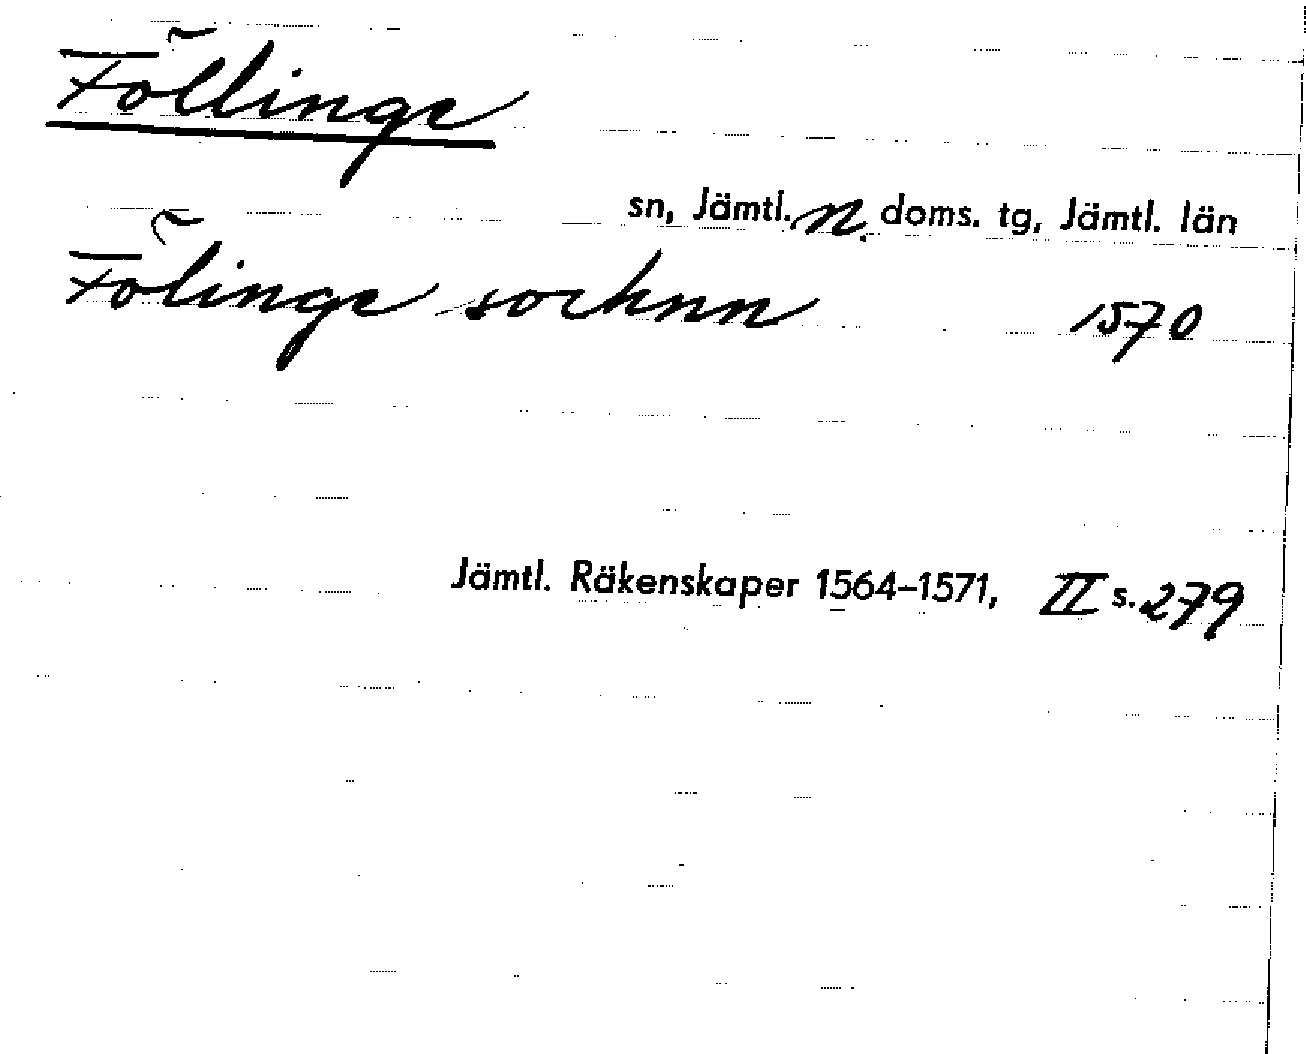 Föllinge
sn, Jämtl. n. doms. tg, Jämtl. län
Fölinge sochnn 1570
Jämtl. Räkenskaper 1564–1571, II s. 279